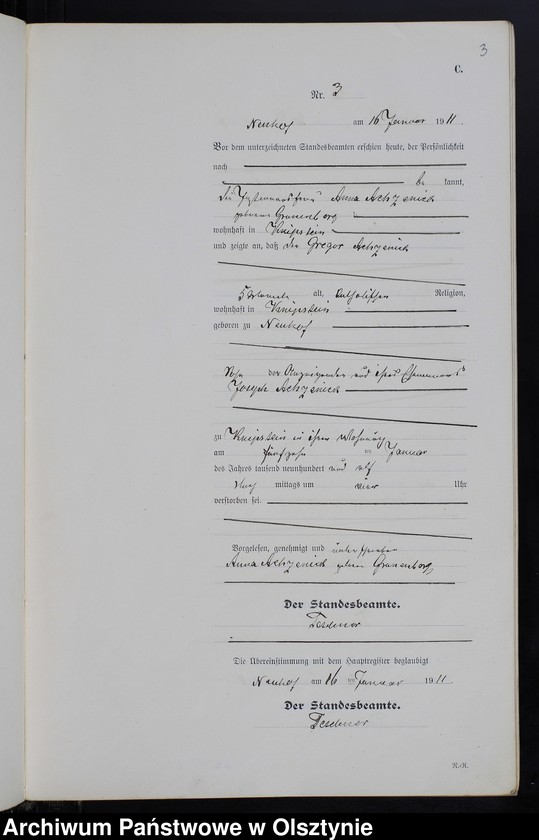 3
C.
Nr. 3
Neuhof am 16 Januar 1911.
Vor dem unterzeichneten Standesbeamten erschien heute, der Persönlichkeit
nach
be kannt,
die Anna
geborene Grunenberg
wohnhaft in Knipstein
und zeigte an, daß der Gregor
5 Monate alt, katholischer Religion,
wohnhaft in Knipstein
geboren zu Neuhof
Sohn der Anzeigenden und ihres Ehemannes
Joseph
zu Knipstein in ihrer Wohnung
am fünfzehn ten Januar
des Jahres tausend neunhundert und elf
Nach mittags um vier Uhr
verstorben sei.
Vorgelesen, genehmigt und unterschrieben
Anna geborene Grunenberg
Der Standesbeamte.
Teschner
Die Übereinstimmung mit dem Hauptregister beglaubigt
Neuhof am 16 ten Januar 1911
Der Standesbeamte.
Teschner
N.-R.
Archiwum Państwowe w Olsztynie